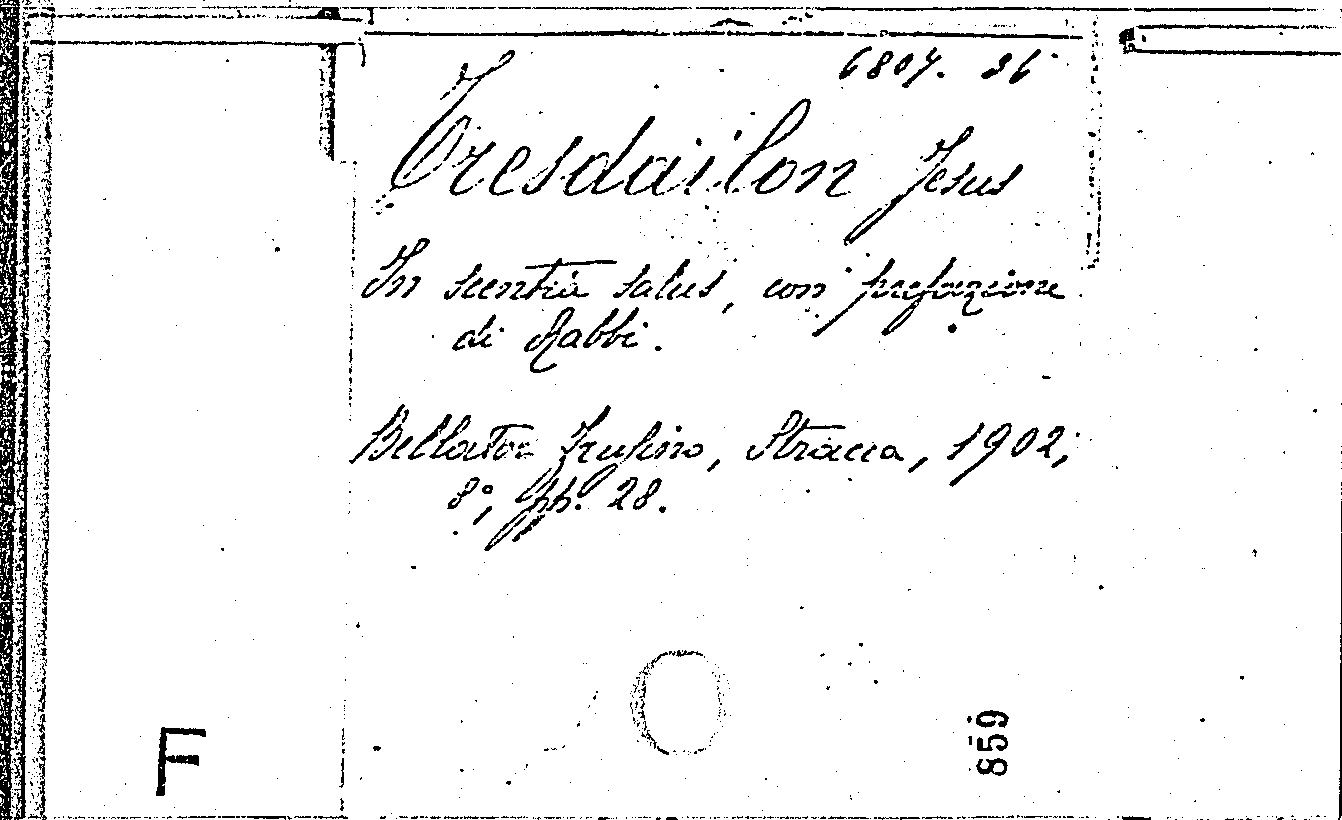 6807. 36
Tresdailon Jesus
In scentia salus, con prefazione
di Rabbi.
Bellator Frusino, Stracca, 1902;
8°, pp. 28.
F
859